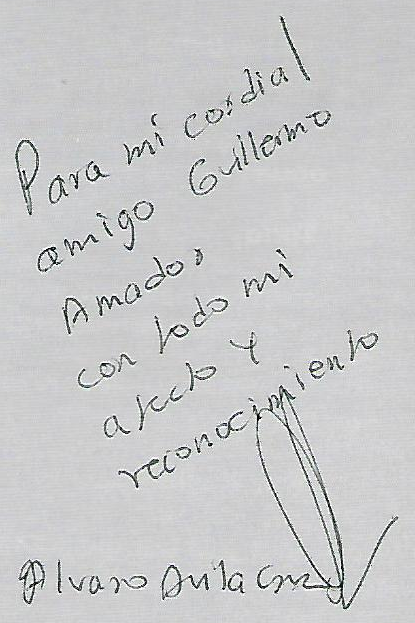 Para mi cordial
amigo Guillermo
Amado,
con todo mi
afecto y
reconocimiento
Alvaro Avila Cruz